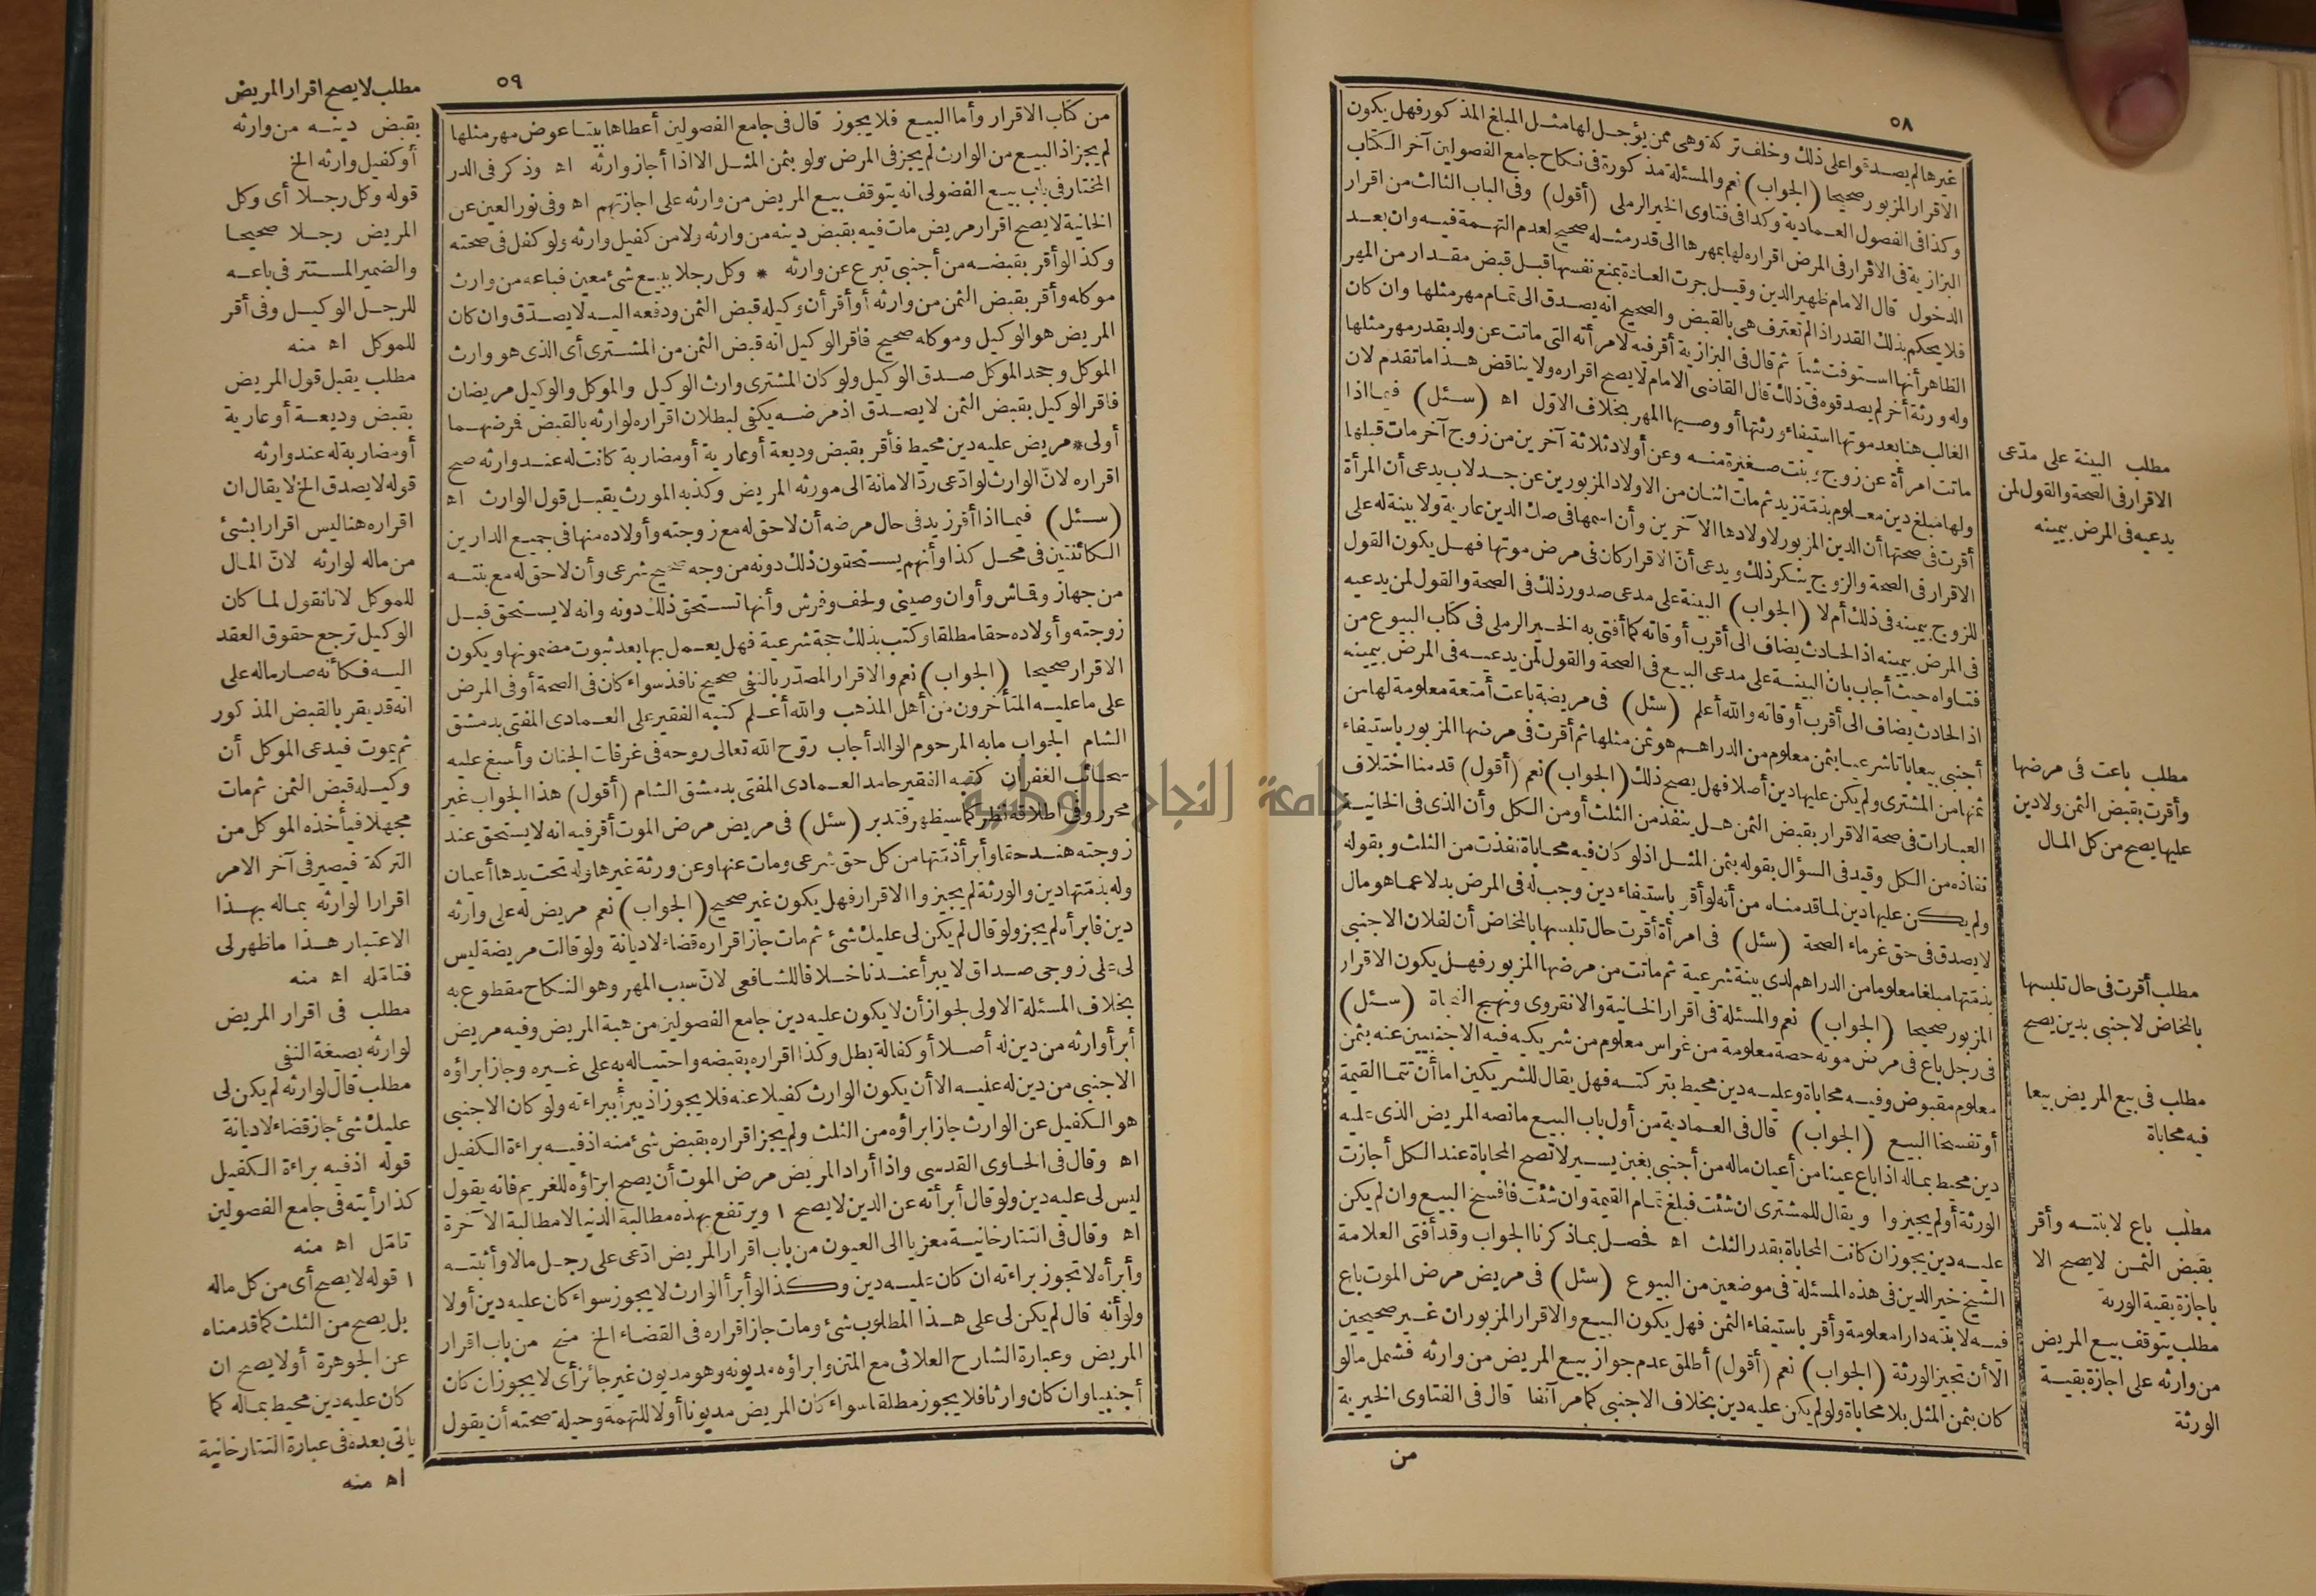 ٥٨
غيرها لم يصدقوا على ذلك وخلف تركة وهى ممن يؤجل لها مثل المبلغ المذكور فهل يكون
الاقرار المزبور صحيحا (الجواب) نعم والمسئلة مذكورة فى نكاح جامع الفصولين آخر الكتاب
وكذا فى الفصول العمادية وكذا فى فتاوى الخير الرملى (أقول) وفى الباب الثالث من اقرار
البزازية فى الاقرار فى المرض اقراره لها بمهرها الى قدر مثله صحيح لعدم التهمة فيه وان بعد
الدخول قال الامام ظهير الدين وقيل جرت العادة بمنع نفسها قبل قبض مقدار من المهر
فلا يحكم بذلك القدر اذا لم تعترف هى بالقبض والصحيح انه يصدق الى تمام مهر مثلها وان كان
الظاهر أنها استوفت شيأ ثم قال فى البزازية أقر فيه لامرأته التى ماتت عن ولد بقدر مهر مثلها
وله ورثة أخر لم يصدقوه فى ذلك قال القاضى الامام لا يصح اقراره ولا يناقض هذا ما تقدم لان
الغالب هنا بعد موتها استيفاء ورثتها أو وصيها المهر بخلاف الاول اه (سئل) فيما اذا
ماتت امرأة عن زوج وبنت صغيرة منه وعن أولاد ثلاثة آخرين من زوج آخر مات قبلها
ولها مبلغ دين معلوم بذمة زيد ثم مات اثنان من الاولاد المزبورين عن جد لاب يدعى أن المرأة
أقرت فى صحتها أن الدين المزبور لاولادها الآخرين وأن اسمها فى صك الدين عارية ولا بينة له على
الاقرار فى الصحة والزوج ينكر ذلك ويدعى أن الاقرار كان فى مرض موتها فهل يكون القول
للزوج بيمينه فى ذلك أم لا (الجواب) البينة على مدعى صدور ذلك فى الصحة والقول لمن يدعيه
فى المرض بيمينه اذ الحادث يضاف الى أقرب أوقاته كما أفتى به الخير الرملى فى كتاب البيوع من
فتاواه حيث أجاب بان البينة على مدعى البيع فى الصحة والقول لمن يدعيه فى المرض بيمينه
اذ الحادث يضاف الى أقرب أوقاته والله أعلم (سئل) فى مريضة باعت أمتعة معلومة لها من
أجنبى بيعا باتا شرعيا بثمن معلوم من الدراهم هو ثمن مثلها ثم أقرت فى مرضها المزبور باستيفاء
ثمنها من المشترى ولم يكن عليها دين أصلا فهل يصح ذلك (الجواب) نعم (أقول) قدمنا اختلاف
العبارات فى صحة الاقرار بقبض الثمن هل ينفذ من الثلث أو من الكل وأن الذى فى الخانية
نفاذه من الكل وقيد فى السؤال بقوله بثمن المثل اذ لو كان فيه محاباة نفذت من الثلث وبقوله
ولم يكن عليها دين لما قدمناه من أنه لو أقر باستيفاء دين وجب له فى المرض بدلا عما هو مال
لا يصدق فى حق غرماء الصحة (سئل) فى امرأة أقرت حال تلبسها بالمخاض أن لفلان الاجنبى
بذمتها مبلغا معلوما من الدراهم لدى بينة شرعية ثم ماتت من مرضها المزبور فهل يكون الاقرار
المزبور صحيحا (الجواب) نعم والمسئلة فى اقرار الخانية والانقروى ونهج النجاة (سئل)
فى رجل باع فى مرض موته حصة معلومة من غراس معلوم من شريكيه فيه الاجنبيين عنه بثمن
معلوم مقبوض وفيه محاباة وعليه دين محيط بتركته فهل يقال للشريكين اما أن تتما القيمة
أو تفسخا البيع (الجواب) قال فى العمادية من أول باب البيع ما نصه المريض الذى عليه
دين محيط بماله اذا باع عينا من أعيان ماله من أجنبى بغبن يسير لا تصح المحاباة عند الكل أجازت
الورثة أو لم يجيزوا ويقال للمشترى ان شئت فبلغ تمام القيمة وان شئت فافسخ البيع وان لم يكن
عليه دين يجوز ان كانت المحاباة بقدر الثلث اه فحصل بما ذكرنا الجواب وقد أفتى العلامة
الشيخ خير الدين فى هذه المسئلة فى موضعين من البيوع (سئل) فى مريض مرض الموت باع
فيه لابنته دارا معلومة وأقر باستيفاء الثمن فهل يكون البيع والاقرار المزبوران غير صحيحين
الا أن تجيز الورثة (الجواب) نعم (أقول) أطلق عدم جواز بيع المريض من وارثه فشمل ما لو
كان بثمن المثل بلا محاباة ولو لم يكن عليه دين بخلاف الاجنبى كما مر آنفا قال فى الفتاوى الخيرية
من
مطلب البينة على مدعى
الاقرار فى الصحة والقول لمن
يدعيه فى المرض بيمينه
مطلب باعت فى مرضها
وأقرت بقبض الثمن ولا دين
عليها يصح من كل المال
مطلب أقرت فى حال تلبسها
بالمخاض لاجنبى بدين يصح
مطلب فى بيع المريض بيعا
فيه محاباة
مطلب باع لابنته وأقر
بقبض الثمن لا يصح الا
باجازة بقية الورثة
مطلب يتوقف بيع المريض
من وارثه على اجازة بقية
الورثة
٥٩
من كتاب الاقرار وأما البيع فلا يجوز قال فى جامع الفصولين أعطاها بيتا عوض مهر مثلها
لم يجز اذ البيع من الوارث لم يجز فى المرض ولو بثمن المثل الا اذا أجاز وارثه اه وذكر فى الدر
المختار فى باب بيع الفضولى انه يتوقف بيع المريض من وارثه على اجازتهم اه وفى نور العين عن
الخانية لا يصح اقرار مريض مات فيه بقبض دينه من وارثه ولا من كفيل وارثه ولو كفل فى صحته
وكذا لو أقر بقبضه من أجنبى تبرع عن وارثه * وكل رجلا ببيع شئ معين فباعه من وارث
موكله وأقر بقبض الثمن من وارثه أو أقر أن وكيله قبض الثمن ودفعه اليه لا يصدق وان كان
المريض هو الوكيل وموكله صحيح فاقر الوكيل انه قبض الثمن من المشترى أى الذى هو وارث
الموكل وجحد الموكل صدق الوكيل ولو كان المشترى وارث الوكيل والموكل والوكيل مريضان
فاقر الوكيل بقبض الثمن لا يصدق اذ مرضه يكفى لبطلان اقراره لوارثه بالقبض فمرضهما
أولى * مريض عليه دين محيط فأقر بقبض وديعة أو عارية أو مضاربة كانت له عند وارثه صح
اقراره لان الوارث لو ادعى رد الامانة الى مورثه المريض وكذبه المورث يقبل قول الوارث اه
(سئل) فيما اذا أقر زيد فى حال مرضه أن لا حق له مع زوجته وأولاده منها فى جميع الدارين
الكائنتين فى محل كذا وأنهم يستحقون ذلك دونه من وجه صحيح شرعى وأن لا حق له مع بنته
من جهاز وقماش وأوان وصينى ولحف وفرش وأنها تستحق ذلك دونه وانه لا يستحق قبل
زوجته وأولاده حقا مطلقا وكتب بذلك حجة شرعية فهل يعمل بها بعد ثبوت مضمونها ويكون
الاقرار صحيحا (الجواب) نعم والاقرار المصدر بالنفى صحيح نافذ سواء كان فى الصحة أو فى المرض
على ما عليه المتأخرون من أهل المذهب والله أعلم كتبه الفقير على العمادى المفتى بدمشق
الشام الجواب ما به المرحوم الوالد أجاب روح الله تعالى روحه فى غرفات الجنان وأسبغ عليه
سحائب الغفران كتبه الفقير حامد العمادى المفتى بدمشق الشام (أقول) هذا الجواب غير
محرر وفى اطلاقه نظر كما سيظهر فتدبر (سئل) فى مريض مرض الموت أقر فيه انه لا يستحق عند
زوجته هند حقا وأبرأ ذمتها من كل حق شرعى ومات عنها وعن ورثة غيرها وله تحت يدها أعيان
وله بذمتها دين والورثة لم يجيزوا الاقرار فهل يكون غير صحيح (الجواب) نعم مريض له على وارثه
دين فابرأه لم يجز ولو قال لم يكن لى عليك شئ ثم مات جاز اقراره قضاء لا ديانة ولو قالت مريضة ليس
لى على زوجى صداق لا يبرأ عندنا خلافا للشافعى لان سبب المهر وهو النكاح مقطوع به
بخلاف المسئلة الاولى لجواز أن لا يكون عليه دين جامع الفصولين من هبة المريض وفيه مريض
أبرأ وارثه من دين له أصلا أو كفالة بطل وكذا اقراره بقبضه واحتياله به على غيره وجاز ابراؤه
الاجنبى من دين له عليه الا أن يكون الوارث كفيلا عنه فلا يجوز اذ يبرأ ببراءته ولو كان الاجنبى
هو الكفيل عن الوارث جاز ابراؤه من الثلث ولم يجز اقراره بقبض شئ منه اذ فيه براءة الكفيل
اه وقال فى الحاوى القدسى واذا أراد المريض مرض الموت أن يصح ابراؤه للغريم فانه يقول
ليس لى عليه دين ولو قال أبرأته عن الدين لا يصح ١ ويرتفع بهذه مطالبة الدنيا لا مطالبة الآخرة
اه وقال فى التتارخانية معزيا الى العيون من باب اقرار المريض ادعى على رجل مالا وأثبته
وأبرأه لا تجوز براءته ان كان عليه دين وكذا لو أبرأ الوارث لا يجوز سواء كان عليه دين أو لا
ولو أنه قال لم يكن لى على هذا المطلوب شئ ومات جاز اقراره فى القضاء الخ منح من باب اقرار
المريض وعبارة الشارح العلائى مع المتن وابراؤه مديونه وهو مديون غير جائز أى لا يجوز ان كان
أجنبيا وان كان وارثا فلا يجوز مطلقا سواء كان المريض مديونا أو لا للتهمة وحيلة صحته أن يقول
مطلب لا يصح اقرار المريض
بقبض دينه من وارثه
أو كفيل وارثه الخ
قوله وكل رجلا أى وكل
المريض رجلا صحيحا
والضمير المستتر فى باعه
للرجل الوكيل وفى أقر
للموكل اه منه
مطلب يقبل قول المريض
بقبض وديعة أو عارية
أو مضاربة له عند وارثه
قوله لا يصدق الخ لا يقال ان
اقراره هنا ليس اقرارا بشئ
من ماله لوارثه لان المال
للموكل لانا نقول لما كان
الوكيل ترجع حقوق العقد
اليه فكأنه صار ماله على
انه قد يقر بالقبض المذكور
ثم يموت فيدعى الموكل أن
وكيله قبض الثمن ثم مات
مجهلا فيأخذه الموكل من
التركة فيصير فى آخر الامر
اقرارا لوارثه بماله بهذا
الاعتبار هذا ما ظهر لى
فتامله اه منه
مطلب فى اقرار المريض
لوارثه بصيغة النفى
مطلب قال لوارثه لم يكن لى
عليك شئ جاز قضاء لا ديانة
قوله اذ فيه براءة الكفيل
كذا رأيته فى جامع الفصولين
تامل اه منه
١ قوله لا يصح أى من كل ماله
بل يصح من الثلث كما قدمناه
عن الجوهرة أو لا يصح ان
كان عليه دين محيط بماله كما
ياتى بعده فى عبارة التتارخانية
اه منه
جامعة النجاح الوطنية